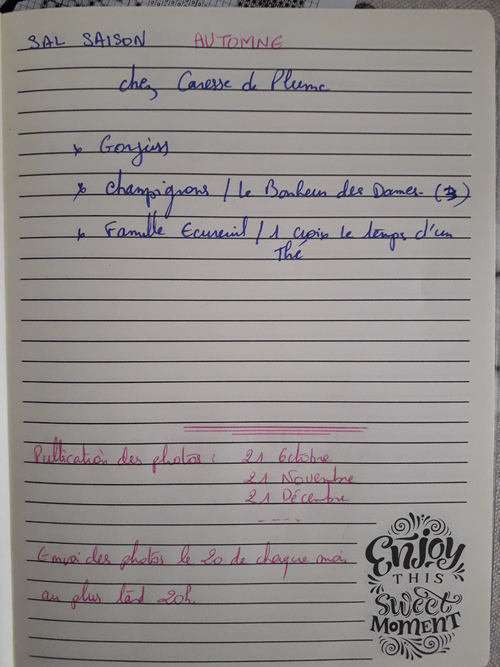 SAL SAISON AUTOMNE
chez Caresse de Plume
x Gorjuss
x Champignons / Le Bonheur des Dames (3)
x Famille Ecureuil / 1 croix le temps d'un
Thé
Publication des photos : 21 Octobre
21 Novembre
21 Décembre
Envoi des photos le 20 de chaque mois
au plus tard 20h.
Enjoy
THIS
Sweet
MOMENT